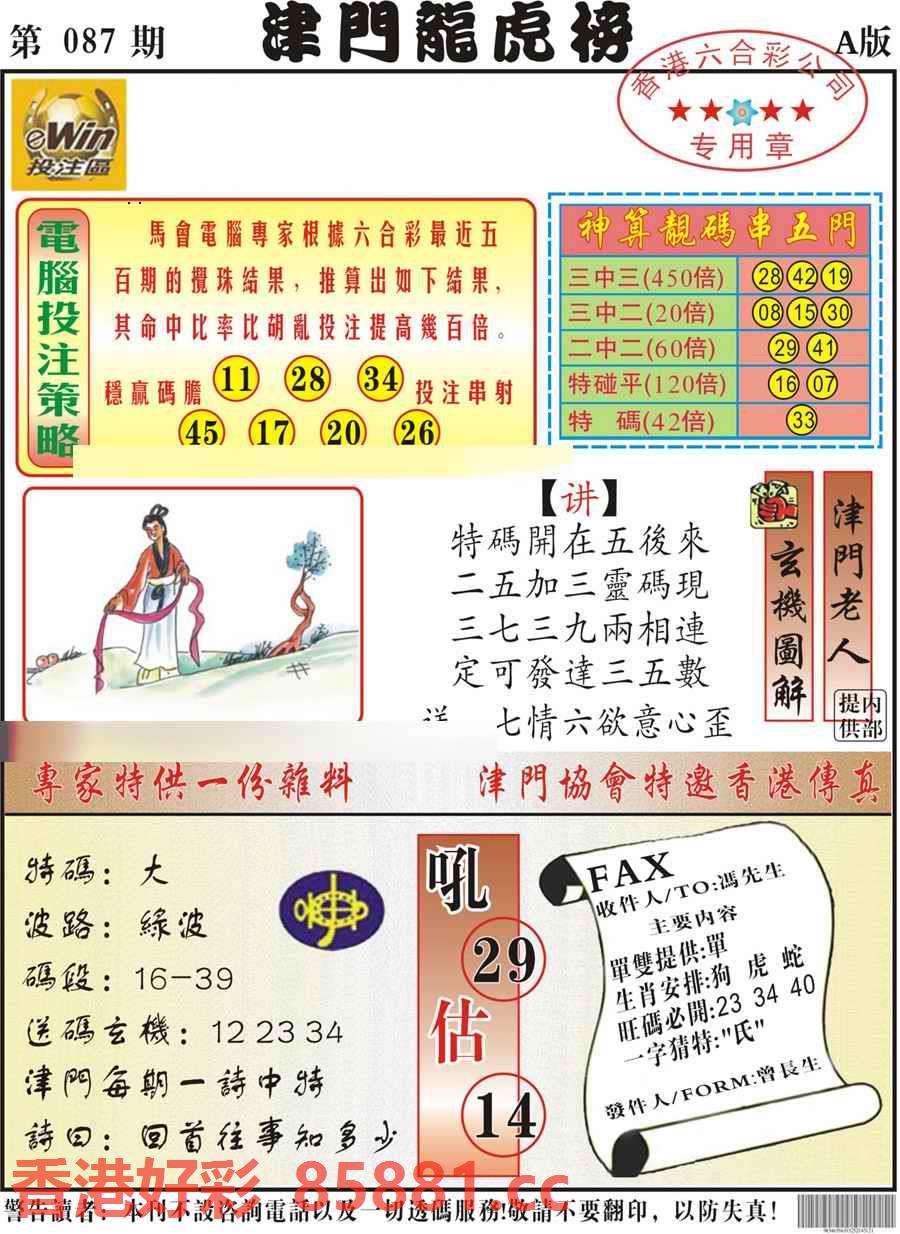 第 087 期
津門龍虎榜
A版
香港六合彩公司
专用章
eWin
投注區
電腦投注策略
馬會電腦專家根據六合彩最近五
百期的攪珠結果，推算出如下結果，
其命中比率比胡亂投注提高幾百倍。
穩贏碼膽 11 28 34 投注串射
45 17 20 26
神算靚碼串五門
三中三(450倍) 28 42 19
三中二(20倍) 08 15 30
二中二(60倍) 29 41
特碰平(120倍) 16 07
特 碼(42倍) 33
【讲】
特碼開在五後來
二五加三靈碼現
三七三九兩相連
定可發達三五數
七情六欲意心歪
玄機圖解
津門老人
内部提供
專家特供一份雜料
津門協會特邀香港傳真
特碼：大
波路：綠波
碼段：16-39
送碼玄機：12 23 34
津門每期一詩中特
詩曰：回首往事知多少
吼
29
估
14
FAX
收件人/TO:馮先生
主要内容
單雙提供:單
生肖安排:狗 虎 蛇
旺碼必開:23 34 40
一字猜特:"氏"
發件人/FORM:曾長生
香港好彩 85881.cc
警告讀者：本刊不設咨詢電話以及一切透碼服務!敬請不要翻印，以防失真!